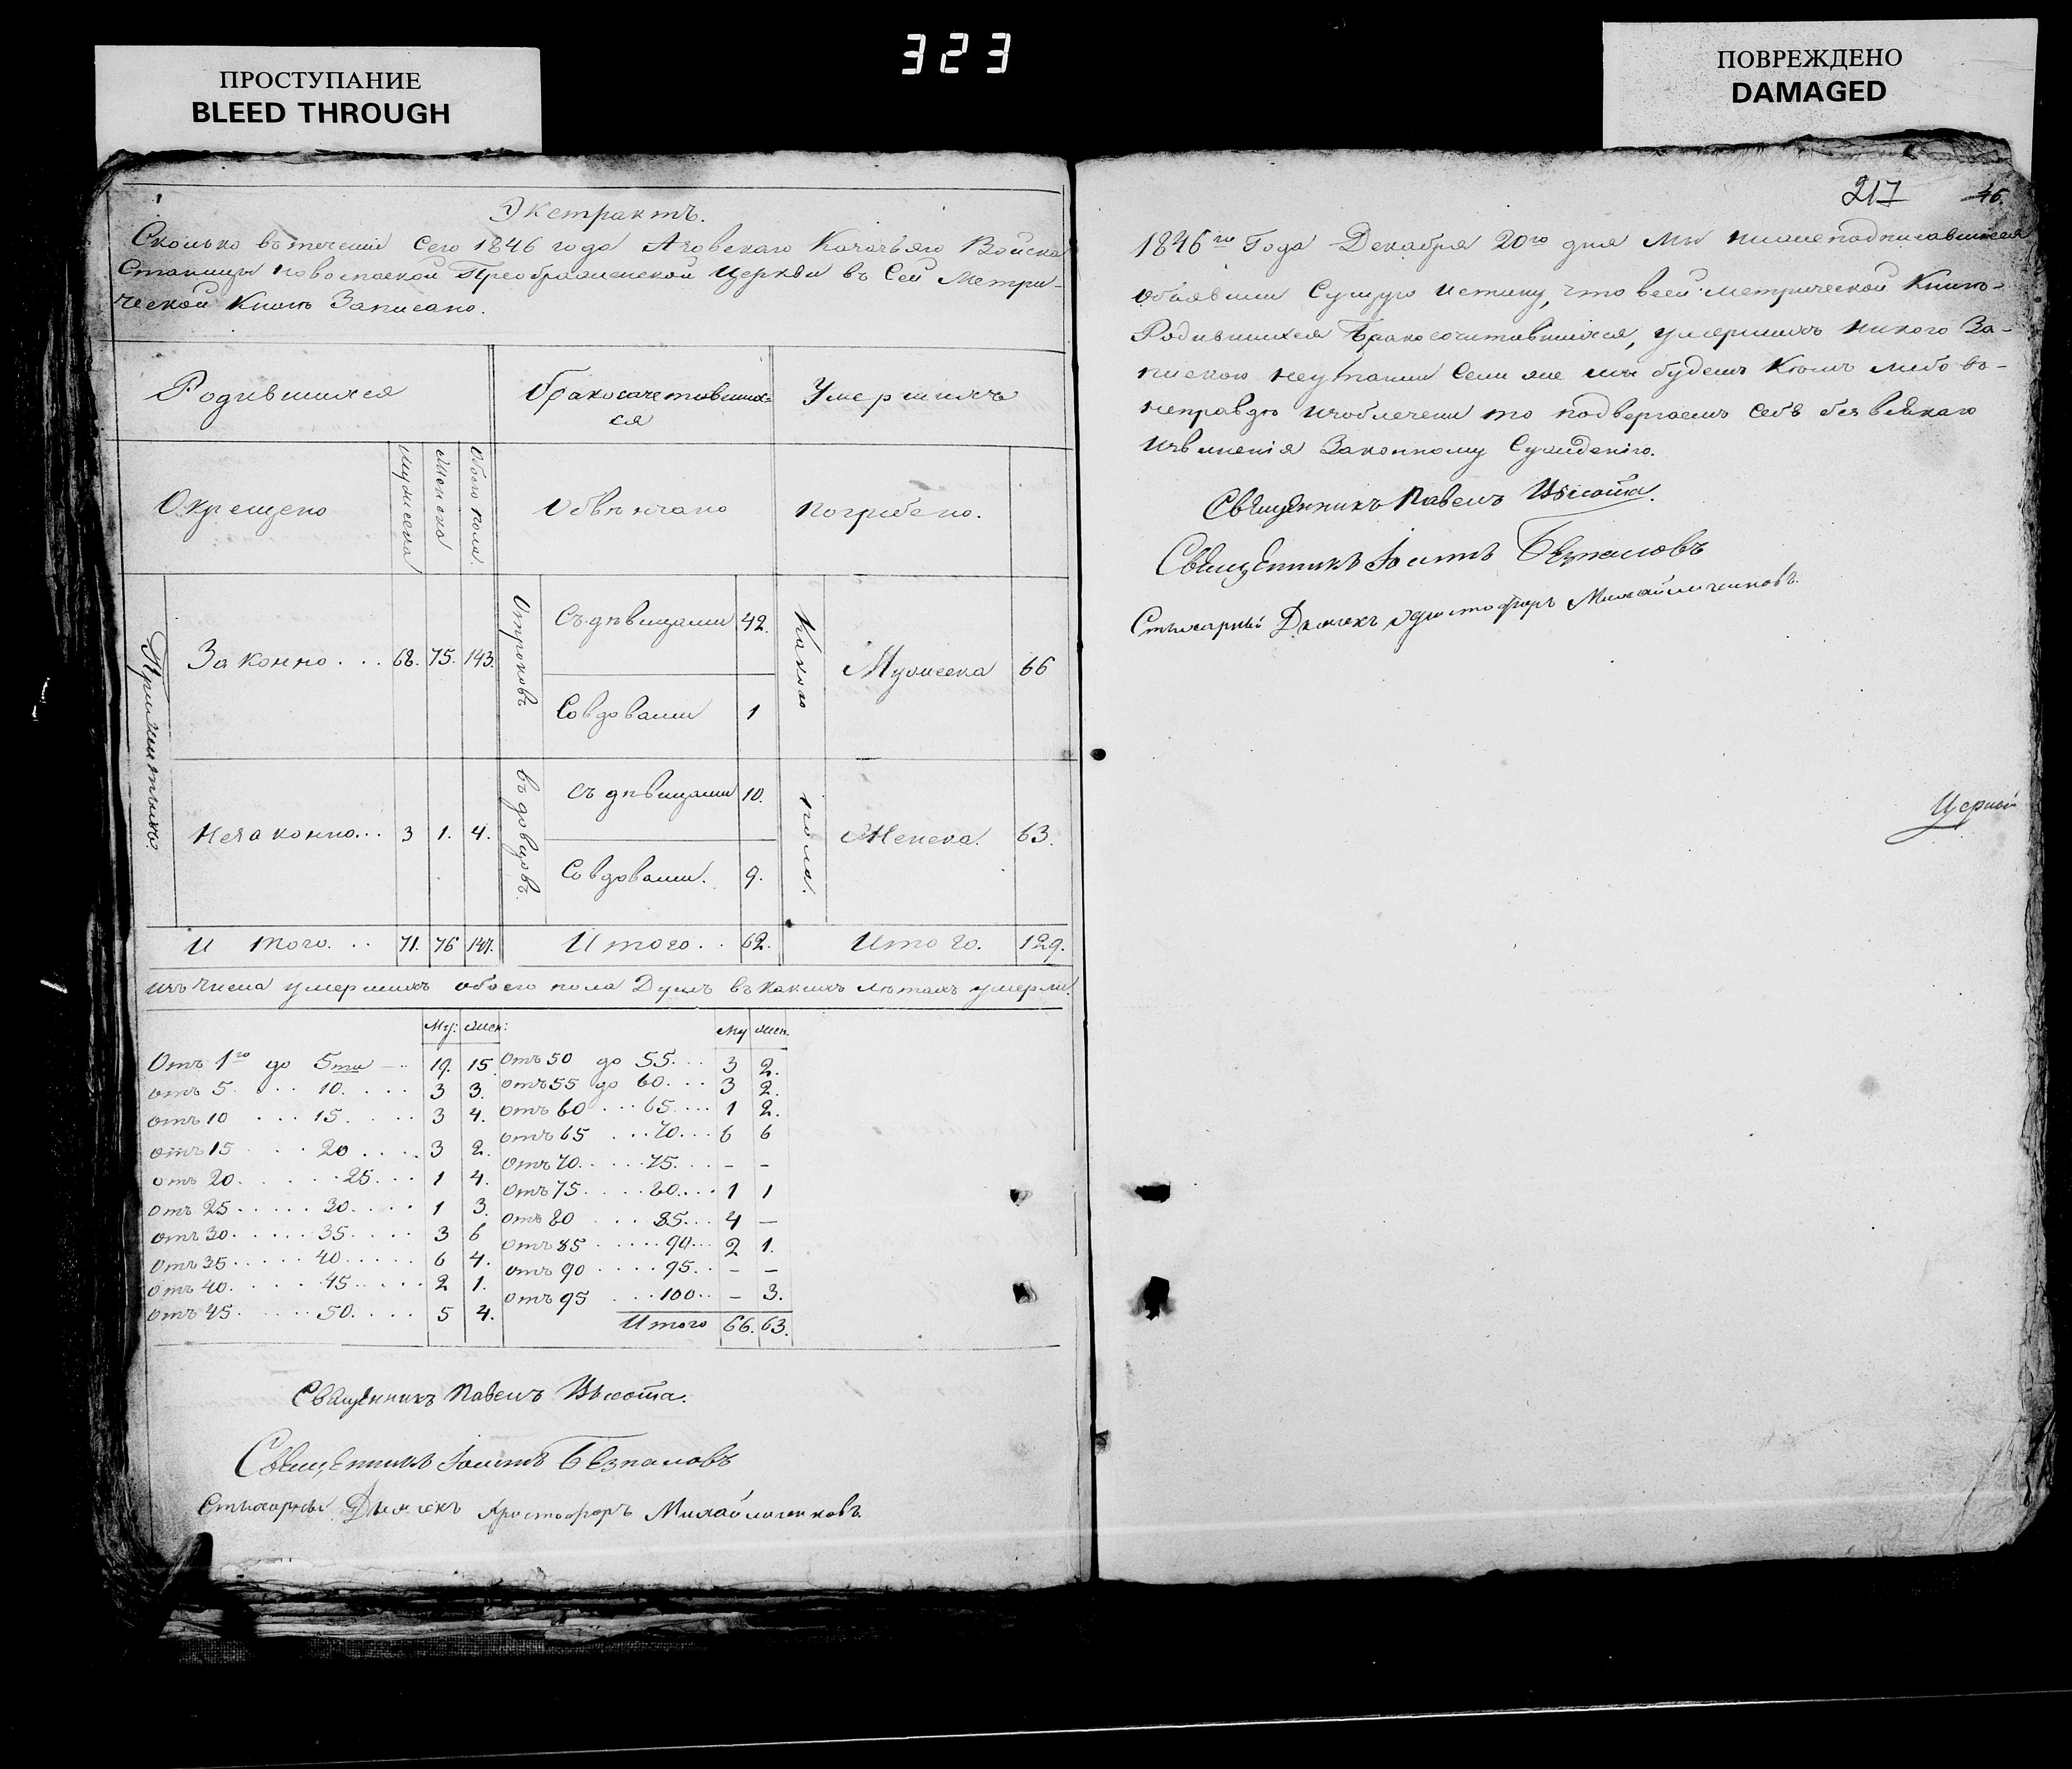 323
ПРОСТУПАНИЕ
BLEED THROUGH
ПОВРЕЖДЕНО
DAMAGED
Экстрактъ.
Сколько въ течении сего 1846 года Азовскаго Козачьяго Войска
Станицы Новоспаской Преображенской Церкви въ сей Метри-
ческой Книгѣ Записано.
Родившихся
Бракосочетавших-
ся
Умершихъ
Окрещено
Мужеска
Женска
Обоего пола.
Обвѣнчано
Погребено.
Прижитыхъ.
Законно . . . 68. 75. 143.
Отроковъ
Съ дѣвицами 42.
Со вдовами 1
Какого пола.
Мужеска 66
Незаконно... 3 1. 4.
Вдовцовъ.
Съ дѣвицами 10.
Со вдовами. 9.
Женска. 63.
И того. . . 71. 76 147.
Итого . . 62.
Итого. 129.
Изъ числа умершихъ обоего пола Душъ въ какихъ лѣтахъ умерли.
Му: Жен:
Отъ 1го до 5ти 19. 15.
отъ 5. . . . 10. . . . 3 3.
отъ 10 . . . 15. . . . 3 4.
отъ 15 . . . 20 . . . . 3 2.
отъ 20. . . . . 25. . . 1 4.
отъ 25 . . . . . 30. . . . 1 3.
отъ 30. . . . . 35. . . . 3 6
отъ 35. . . . . 40. . . . . 6 4.
отъ 40. . . . . 45. . . . . 2 1.
отъ 45. . . . . 50. . . . 5 4.
Му Жен.
Отъ 50 до 55. . . 3 2.
отъ 55 до 60. . . 3 2.
отъ 60 . . . 65. . . . 1 2.
отъ 65 . . . 70. . . 6 6
отъ 70. . . . . 75. . . – –
отъ 75. . . . 80. . . . 1 1
отъ 80 . . . 85. . . 4 –
отъ 85 . . . . . 90. . . 2 1.
отъ 90 . . . . 95. . – –
отъ 95 . . . 100. . – 3.
Итого 66. 63.
Священникъ Павелъ Высота.
Священникъ Іоаннъ Безпаловъ
Стихарный Дьячекъ Христофоръ Михайличенковъ.
217
46.
1846го Года Декабря 20го дня Мы нижеподписавшиеся
объявили Сущую истину, что всей метрической Книгѣ
Родившихся Бракосочитавшихся, умершихъ никого За-
пискою неутаили Если же мы будемъ Кѣмъ либо въ-
неправдѣ изобличены то подвергаемъ себѣ безъ всякаго
извиненія Законному Сужденію.
Священникъ Павелъ Высота.
Священникъ Іоаннъ Безпаловъ
Стихарный Дьячекъ Христофоръ Михайличенковъ.